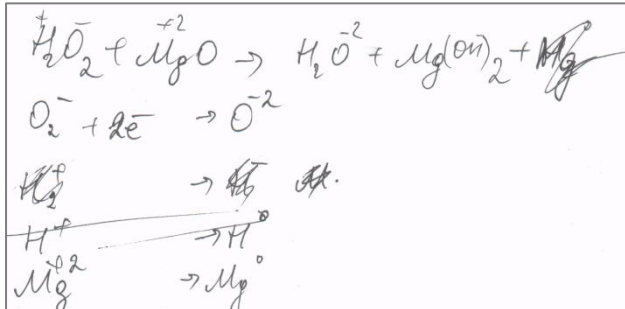 H₂⁺O₂⁻ + Mg⁺²O → H₂O⁻² + Mg(OH)₂ +
O₂⁻ + 2e̅ → O⁻²
→
H⁺ → H⁰
Mg⁺² → Mg⁰